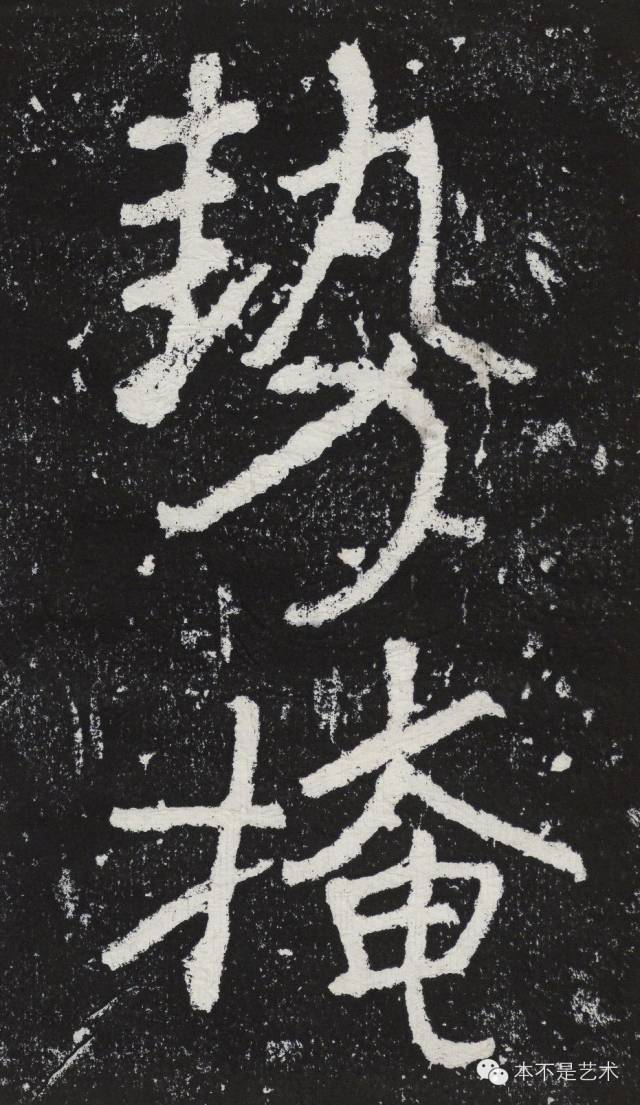 勢
掩
本不是艺术